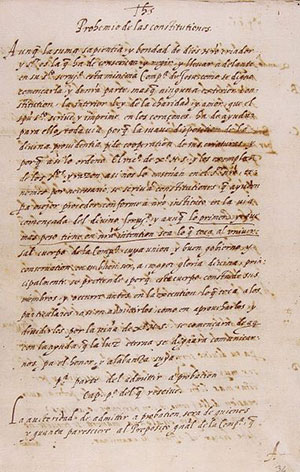 Jhs
Prohemio de las constitutiones.
Aunq̃ la suma sapientia, y bondad de dios nr̃o criador
y s.ᵒʳ es la q̃ ha de conseruar y regir, y lleuar adelante
en su s.ᵗᵒ seruiᵒ esta minima Comp.ᵃ de Jesus como se digno
comenzarla y de nr̃a parte mas q̃ ninguna exterior con-
stitution, la interior ley de la charidad y amor, que el
spũ scᵗᵒ escriue, y imprime en los corazones ha de ayudar
para ello, toda uia porq̃ la suaue disposicion de la
diuina prouidentia pide cooperation de sus criaturas, y
porq̃ assi lo ordeno el Vic.ᵒ de X.ᵒ N. S. y los exemplos
de los S.ᵗᵒˢ y razon assi nos lo enseñan en el S.ᵒʳ nr̃o, te-
nemos por necesario se escriuan constitutiones q̃ ayuden
pa mejor proceder conforme a nr̃o instituto en la uia
comenzada del diuino seruiᵒ. y aunq̃ lo
mas pero tiene en nr̃a intention sea lo q̃ toca al uniuer-
sal cuerpo de la Comp.ᵃ cuya union, y buen gouierno, y
conseruation en su bien ser, a mayor gloria diuina, prin-
cipalmente se pretende, porq̃ este cuerpo consta de sus
miembros, y occurre antes en la execution lo q̃ toca a los
particulares, assi en admitirlos como en aprouecharlos, y
diuidirlos por la uiña de X.ᵒ N. S. se comenzara de aqui
con la ayuda q̃ la luz eterna se dignara comunicar-
nos, pa el honor, y alabanza suya.
p.ᵃ parte del admitir a probation
Cap. p.ᵒ del q̃ rescibe.
La autoridad de admitir a probation sera de quienes
y quanto paresciere al Preposito gñal de la Comp.ᵃ q̃